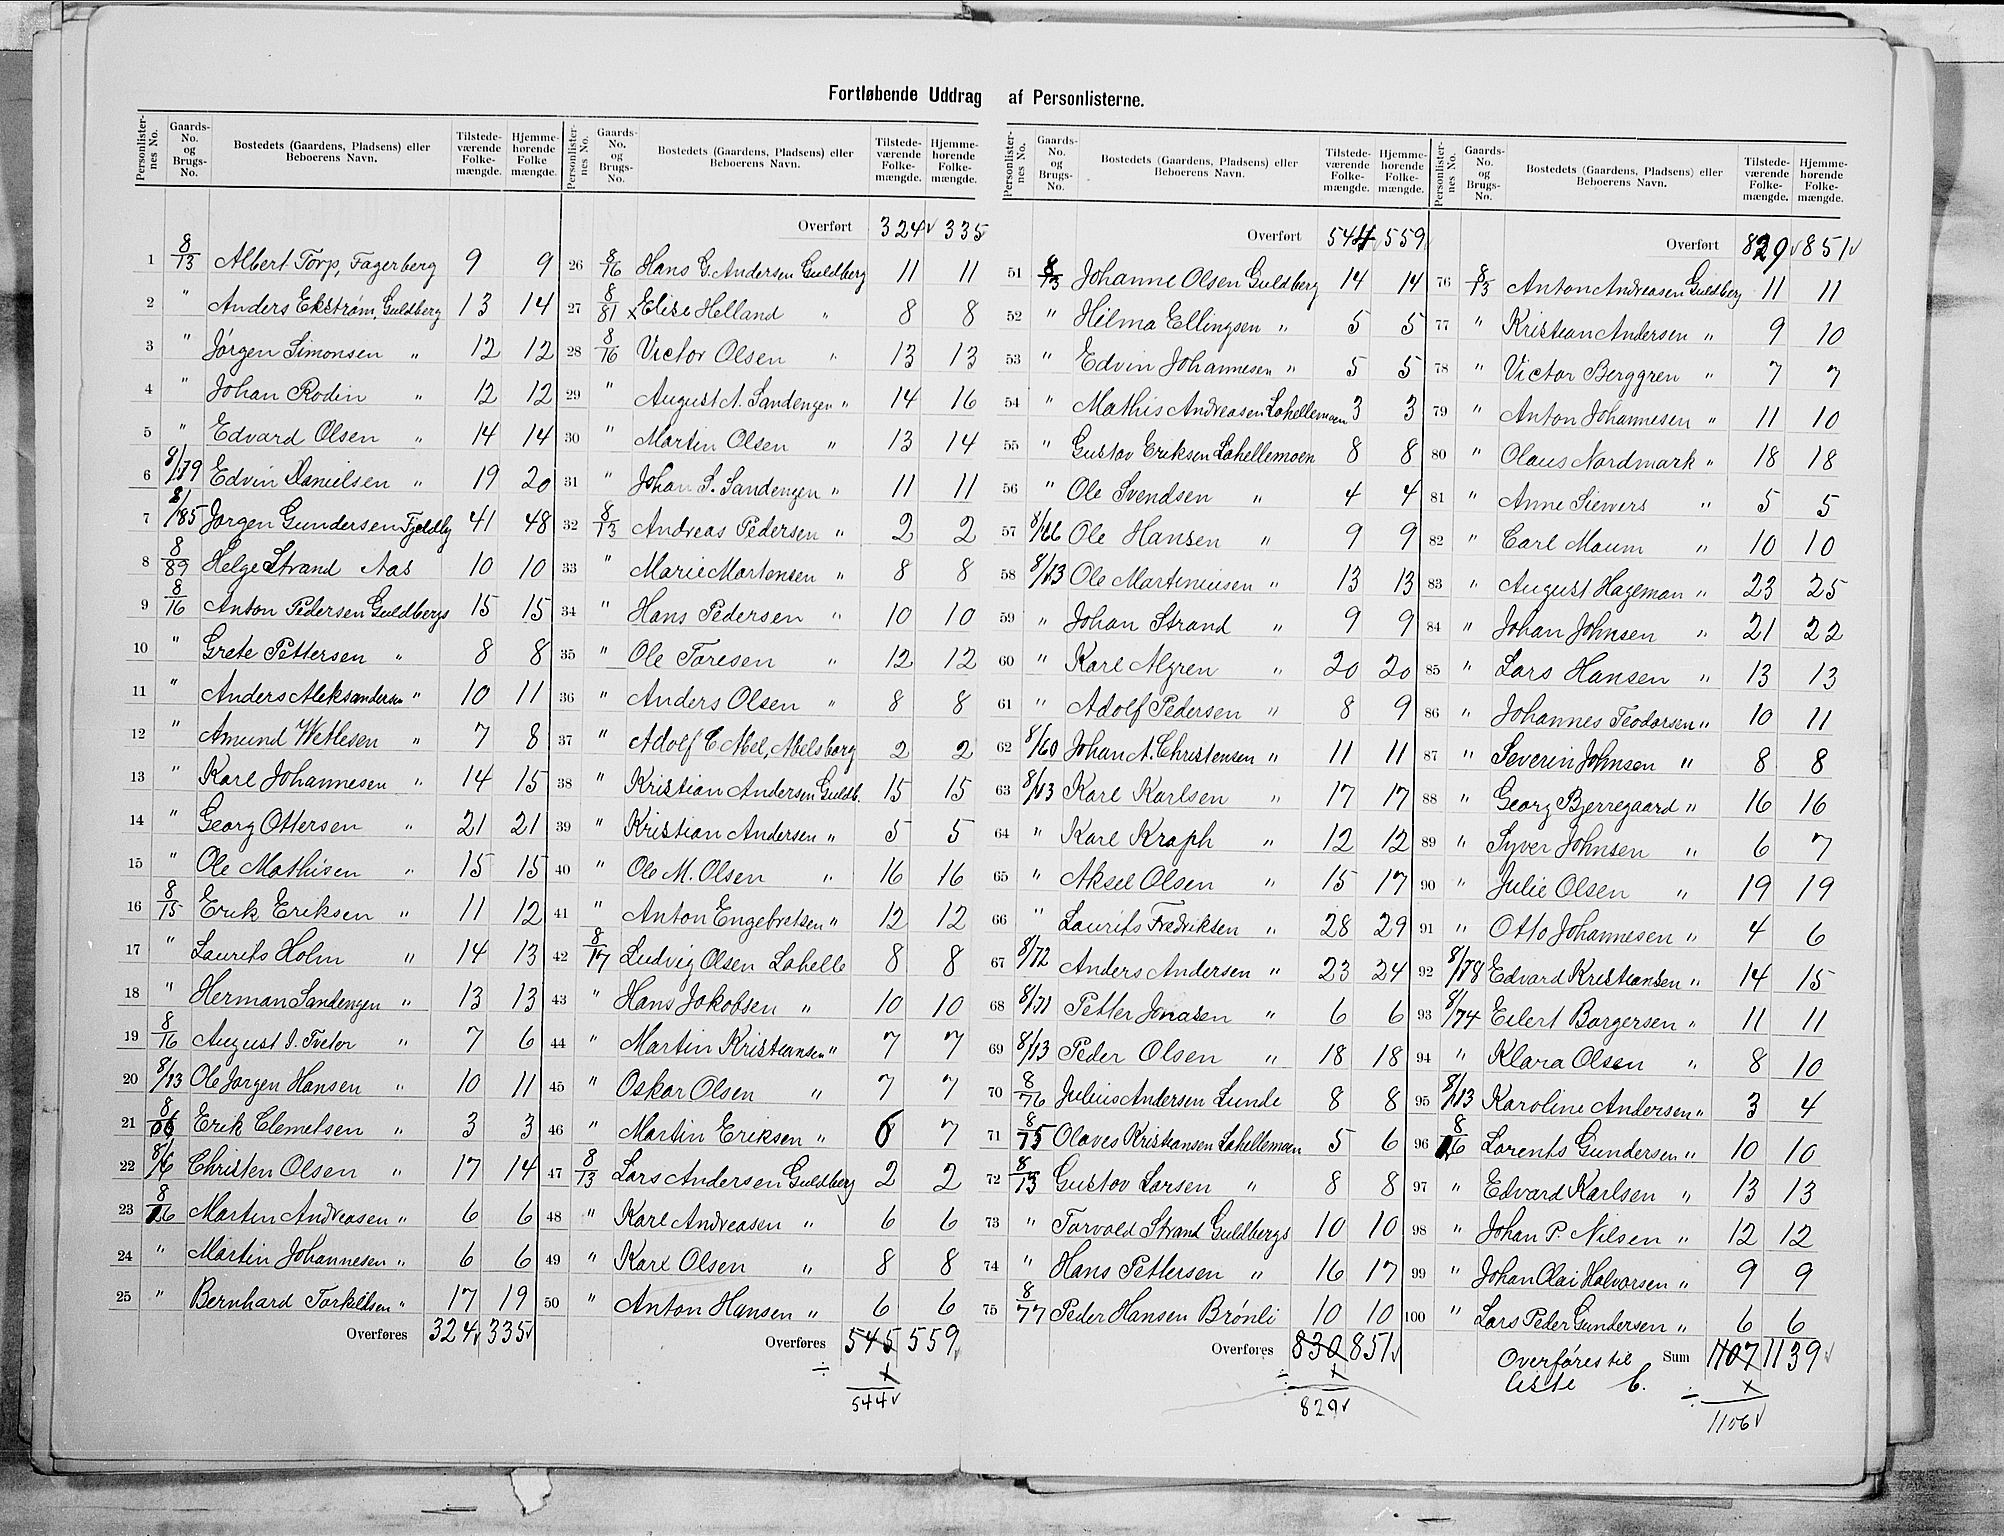 Fortløbende Uddrag af Personlisterne.
Personlister-nes No. Gaards-No. og Brugs-No. Bostedets (Gaardens, Pladsens) eller Beboerens Navn. Tilstede-værende Folke-mængde. Hjemme-hørende Folke mængde.
1 8/13 Albert Torp, Fagerberg 9 9
2 " Anders Ekstrøm, Guldberg 13 14
3 " Jørgen Simonsen " 12 12
4 " Johan Rodin " 12 12
5 " Edvard Olsen " 14 14
6 8/179 Edvin Danielsen " 19 20
7 8/185 Jørgen Gundersen Fjeldby 41 48
8 8/89 Helge Strand Aas 10 10
9 8/16 Anton Pedersen Guldbergs 15 15
10 " Grete Pettersen " 8 8
11 " Anders Aleksandersen " 10 11
12 " Amund Wetlesen " 7 8
13 " Karl Johannesen " 14 15
14 " Georg Ottersen " 21 21
15 " Ole Mathisen " 15 15
16 8/15 Erik Eriksen " 11 12
17 " Laurits Holm " 14 13
18 " Herman Sandengen " 13 13
19 8/16 August I. Tveter " 7 6
20 8/13 Ole Jørgen Hansen " 10 11
21 8/ Erik Clemetsen " 3 3
22 8/6 Christen Olsen " 17 14
23 8/16 Martin Andreasen " 6 6
24 " Martin Johannesen " 6 6
25 " Bernhard Torkildsen " 17 19
Overføres 324 335
Personlister-nes No. Gaards-No. og Brugs-No. Bostedets (Gaardens, Pladsens) eller Beboerens Navn. Tilstede-værende Folke-mængde. Hjemme-hørende Folke-mængde.
Overført 324 335
26 8/16 Hans G. Andersen Guldberg 11 11
27 8/81 x Elise Helland " 8 8
28 8/16 Victor Olsen " 13 13
29 " August A. Sandengen " 14 16
30 " Martin Olsen " 13 14
31 " Johan S. Sandengen " 11 11
32 8/13 Andreas Pedersen " 2 2
33 " Marie Mortensen " 8 8
34 " Hans Pedersen " 10 10
35 " Ole Toresen " 12 12
36 " Anders Olsen " 8 8
37 " Adolf C Abel, Abelsborg 2 2
38 " Kristian Andersen Guldb. 15 15
39 " Kristian Andersen " 5 5
40 " Ole M. Olsen " 16 16
41 " Anton Engebretsen " 12 12
42 8/17 Ludvig Olsen Lahelle 8 8
43 " Hans Jakobsen " 10 10
44 " Martin Kristiansen " 7 7
45 " Oskar Olsen " 7 7
46 " Martin Eriksen " 6 7
47 8/13 Lars Andersen Guldberg 2 2
48 " Karl Andreasen " 6 6
49 " Karl Olsen " 8 8
50 " Anton Hansen " 6 6
Overføres 545 559
÷ x
544
Personlister-nes No. Gaards-No. og Brugs-No. Bostedets (Gaardens, Pladsens) eller Beboerens Navn. Tilstede-værende Folke-mængde. Hjemme-hørende Folke-mængde.
Overført 544 559
51 8/13 Johanne Olsen Guldberg 14 14
52 " Hilma Ellingsen " 5 5
53 " Edvin Johannesen " 5 5
54 " Mathis Andreasen Lahellemoen 3 3
55 " Gustav Eriksen Lahellemoen 8 8
56 " Ole Svendsen " 4 4
57 8/166 Ole Hansen " 9 9
58 8/13 Ole Martiniusen " 13 13
59 " Johan Strand " 9 9
60 " Karl Mgren " 20 20
61 " Adolf Pedersen " 8 9
62 8/60 Johan A. Christensen " 11 11
63 8/13 Karl Karlsen " 17 17
64 " Karl Kraph " 12 12
65 " Aksel Olsen " 15 17
66 " Laurits Fredriksen " 28 29
67 8/72 Anders Andersen " 23 24
68 8/71 Petter Jonasen " 6 6
69 8/13 Peder Olsen " 18 18
70 8/76 Julius Andersen Lunde 8 8
71 8/75 Olaves Kristiansen Lahellemoen 5 6
72 8/13 Gustav Larsen " 8 8
73 " Torvald Strand Guldbergs 10 10
74 " Hans Pettersen " 16 17
75 8/77 Peder Hansen Brønli 10 10
Overføres 830 851
÷ x
829
Personlister-nes No. Gaards-No. og Brugs-No. Bostedets (Gaardens, Pladsens) eller Beboerens Navn. Tilstede-værende Folke-mængde. Hjemme-hørende Folke-mængde.
Overført 829 851
76 8/13 Anton Andreasen Guldberg 11 11
77 " Kristian Andersen " 9 10
78 " Victor Berggren " 7 7
79 " Anton Johannesen " 11 10
80 " Olaus Nordmark " 18 18
81 " Anne Siewers " 5 5
82 " Carl Maum " 10 10
83 " August Hageman " 23 25
84 " Johan Johnsen " 21 22
85 " Lars Hansen " 13 13
86 " Johannes Teodorsen " 10 11
87 " Severin Johnsen " 8 8
88 " Georg Bjerregaard " 16 16
89 " Syver Johnsen " 6 7
90 " Julie Olsen " 19 19
91 " Otto Johannesen " 4 6
92 8/78 Edvard Kristiansen " 14 15
93 8/74 Eilert Borgersen " 11 11
94 " Klara Olsen " 8 10
95 8/13 Karoline Andersen " 3 4
96 8/16 Lorents Gundersen " 10 10
97 " Edvard Karlsen " 13 13
98 " Johan P. Nilsen " 12 12
99 " Johan Olai Halvorsen " 9 9
100 " Lars Peder Gundersen " 6 6
Overføres til Sum 1107 1139
liste C. ÷ x
1106